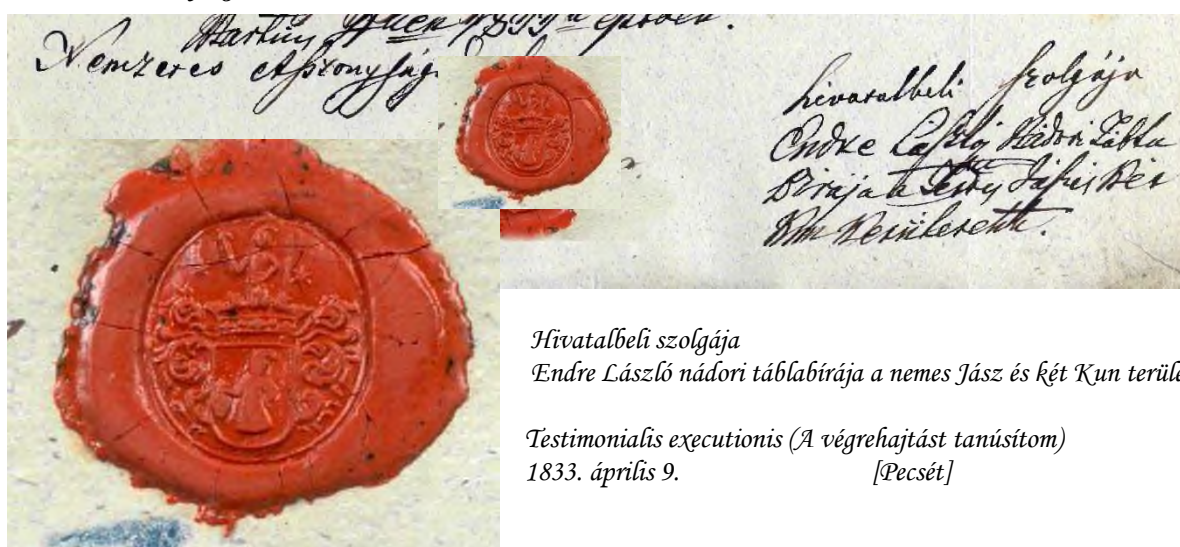 Nemzetes Asszonyság
hivatalbeli szolgája
Endre László Nádori Tábla
Birája a Jász és két
Kun Kerületeth.
Hivatalbeli szolgája
Endre László nádori táblabírája a nemes Jász és két Kun terüle
Testimonialis executionis (A végrehajtást tanúsítom)
1833. április 9. [Pecsét]